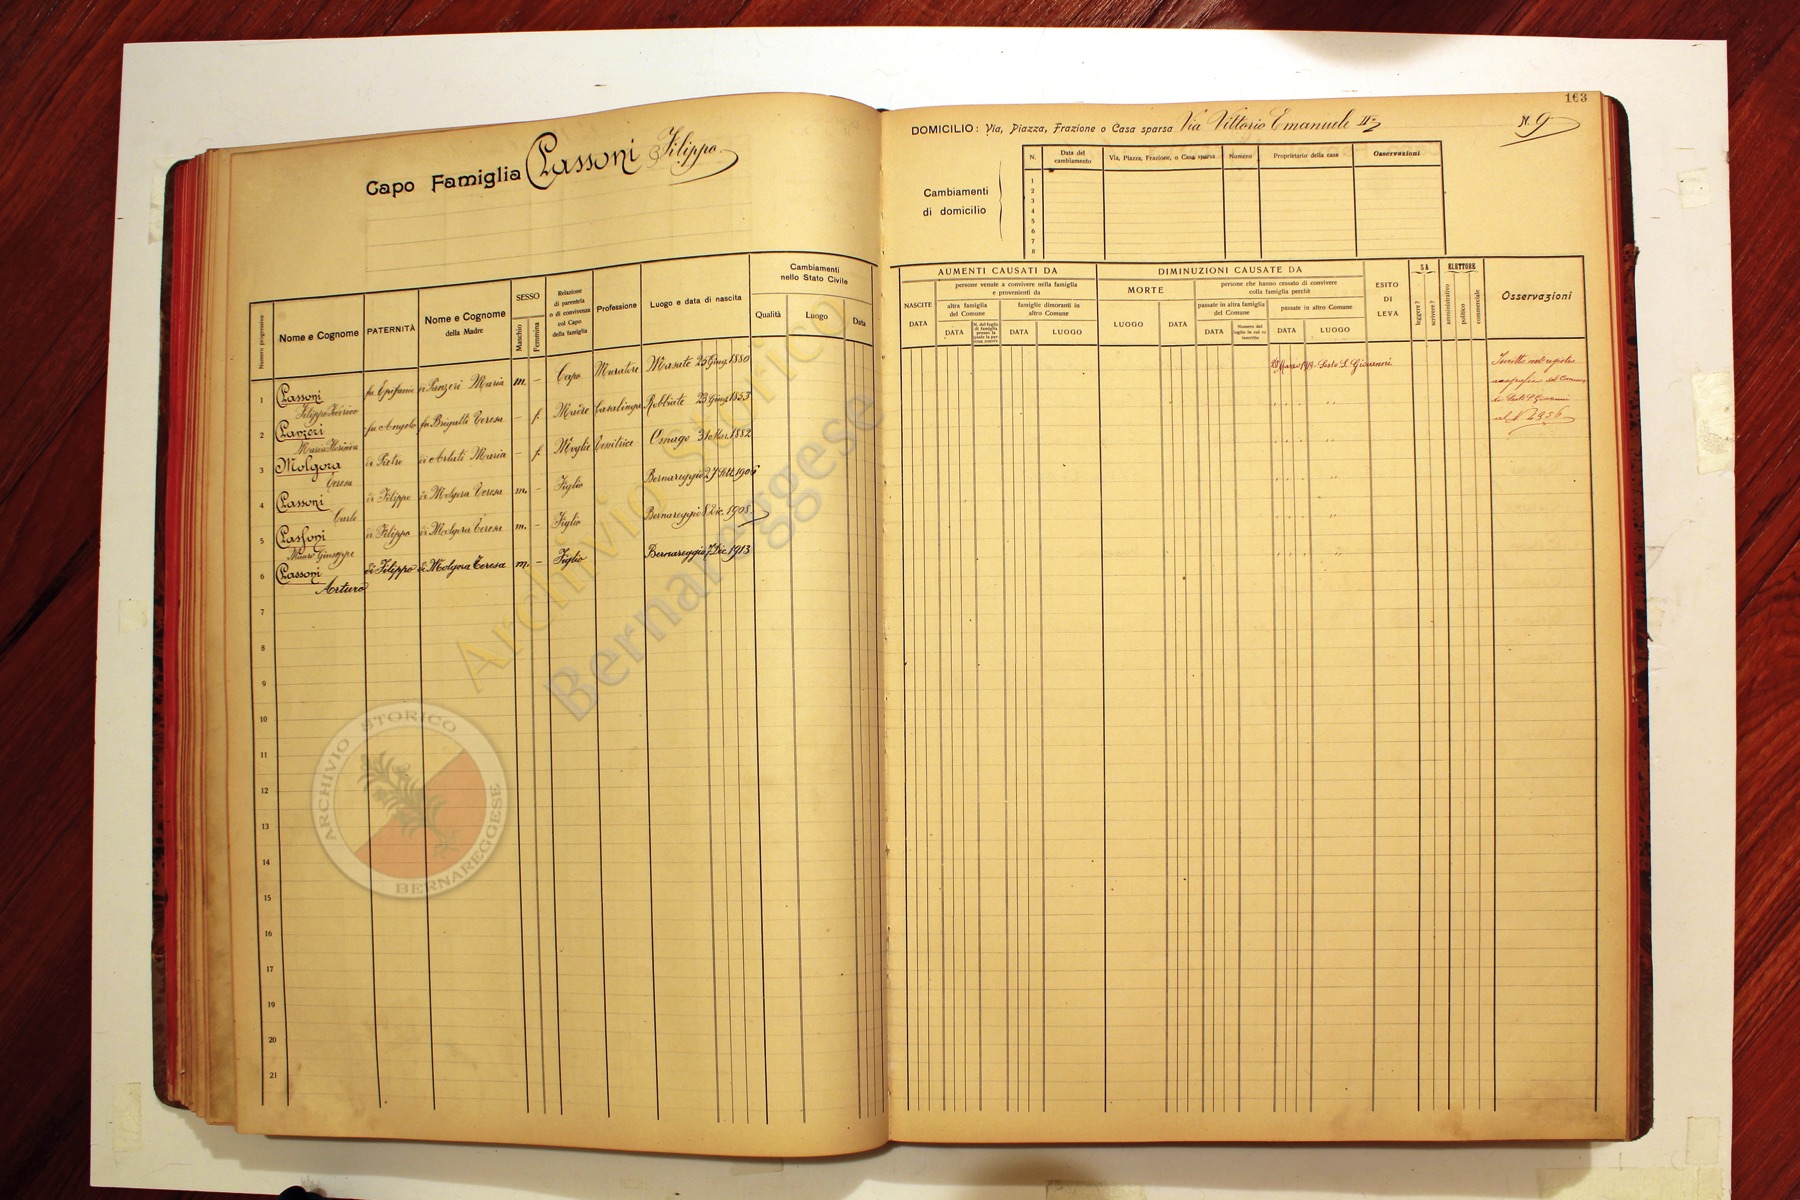 163
Capo Famiglia Passoni Filippo
DOMICILIO: Via, Piazza, Frazione o Casa sparsa Via Vittorio Emanuele II° N. 9
Cambiamenti
di domicilio
N.
Data del cambiamento
Via, Piazza, Frazione, o Casa sparsa
Numero
Proprietario della casa
Osservazioni
1
2
3
4
5
6
7
8
Numero progressivo
Nome e Cognome
PATERNITÀ
Nome e Cognome
della Madre
SESSO
Maschio
Femmina
Relazione
di parentela
o di convivenza
col Capo
della famiglia
Professione
Luogo e data di nascita
Cambiamenti
nello Stato Civile
Qualità
Luogo
Data
AUMENTI CAUSATI DA
NASCITE
DATA
persone venute a convivere nella famiglia
e provenienti da
altra famiglia
del Comune
DATA
N. del foglio di famiglia presso la quale la persona esisteva
famiglie dimoranti in
altro Comune
DATA
LUOGO
DIMINUZIONI CAUSATE DA
MORTE
LUOGO
DATA
persone che hanno cessato di convivere
colla famiglia perchè
passate in altra famiglia
del Comune
DATA
Numero del foglio in cui fu inscritto
passate in altro Comune
DATA
LUOGO
ESITO
DI
LEVA
SA
leggere?
scrivere?
ELETTORE
amministrativo
politico
commerciale
Osservazioni
1 Passoni Filippo Federico fu Epifanio di Panzeri Maria m. – Capo Muratore Masate 25 Giug. 1880 28 Marzo 1919 Sesto S. Giovanni
2 Panzeri Maria fu Angelo fu Brigatti Teresa – f. Madre Casalinga Robbiate 23 Giug. 1853 " "
3 Molgora Teresa di Pietro di Arlati Maria – f. Moglie Osnago 31 Mar. 1882 " "
4 Passoni Carlo di Filippo di Molgora Teresa m. – Figlio Bernareggio 27 Sett. 1906 " "
5 Passoni Mauro Giuseppe di Filippo di Molgora Teresa m. – Figlio Bernareggio 8 Dic. 1908 " "
6 Passoni Arturo di Filippo di Molgora Teresa m. – Figlio Bernareggio 7 Dic. 1913 " "
Iscritto nel registro
anagrafico del Comune
di Sesto S. Giovanni
al N°
7
8
9
10
11
12
13
14
15
16
17
18
19
20
21
Archivio Storico
Bernareggese
ARCHIVIO STORICO
BERNAREGGESE